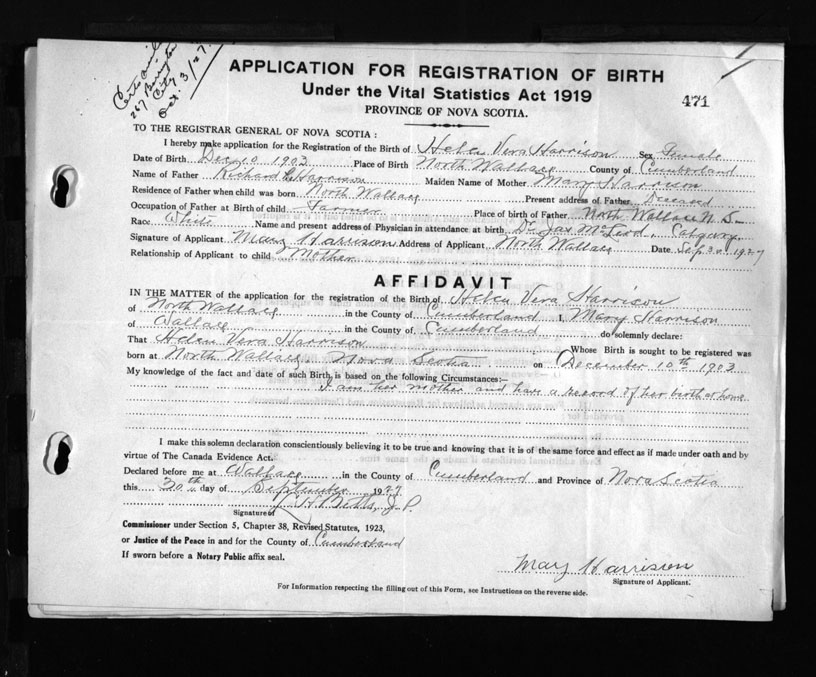 Certain
267
City
Oct. 3/27.
APPLICATION FOR REGISTRATION OF BIRTH
Under the Vital Statistics Act 1919
471
PROVINCE OF NOVA SCOTIA.
TO THE REGISTRAR GENERAL OF NOVA SCOTIA :
I hereby make application for the Registration of the Birth of Helen Vera Harrison Sex Female
Date of Birth Dec 10 1903 Place of Birth North Wallace County of Cumberland
Name of Father Richard Harrison Maiden Name of Mother Mary Harrison
Residence of Father when child was born North Wallace Present address of Father Deceased
Occupation of Father at Birth of child Farmer Place of birth of Father North Wallace N.S.
Race White Name and present address of Physician in attendance at birth Dr. Jas McLeod, Calgary
Signature of Applicant Mary Harrison Address of Applicant North Wallace Date Sep 1927
Relationship of Applicant to child Mother
AFFIDAVIT
IN THE MATTER of the application for the registration of the Birth of Helen Vera Harrison
of North Wallace in the County of Cumberland I, Mary Harrison
of Wallace in the County of Cumberland do solemnly declare:
That Helen Vera Harrison Whose Birth is sought to be registered was
born at North Wallace, Nova Scotia on December 10th 1903
My knowledge of the fact and date of such Birth is based on the following Circumstances:—
I am her mother and have a record of her birth at home
I make this solemn declaration conscientiously believing it to be true and knowing that it is of the same force and effect as if made under oath and by
virtue of The Canada Evidence Act.
Declared before me at Wallace in the County of Cumberland and Province of Nova Scotia
this day of September 1927
J.P.
Signature of
Commissioner under Section 5, Chapter 38, Revised Statutes, 1923,
or Justice of the Peace in and for the County of Cumberland
If sworn before a Notary Public affix seal.
Mary Harrison
Signature of Applicant.
For Information respecting the filling out of this Form, see Instructions on the reverse side.